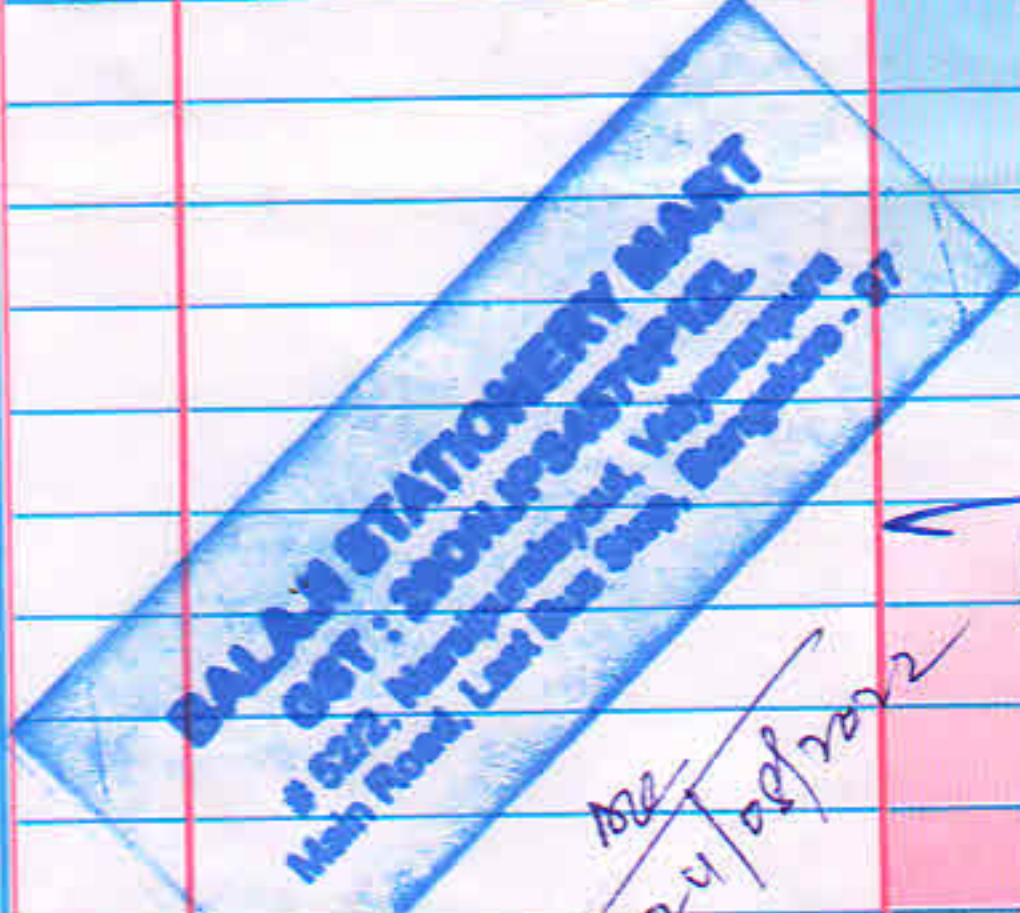 BALAN STATIONERY MART
GST :
# 52/2, Narasipuralayout, Vidyaranyapura
Main Road, Last Bus Stop, Bangalore - 97
24/08/2022